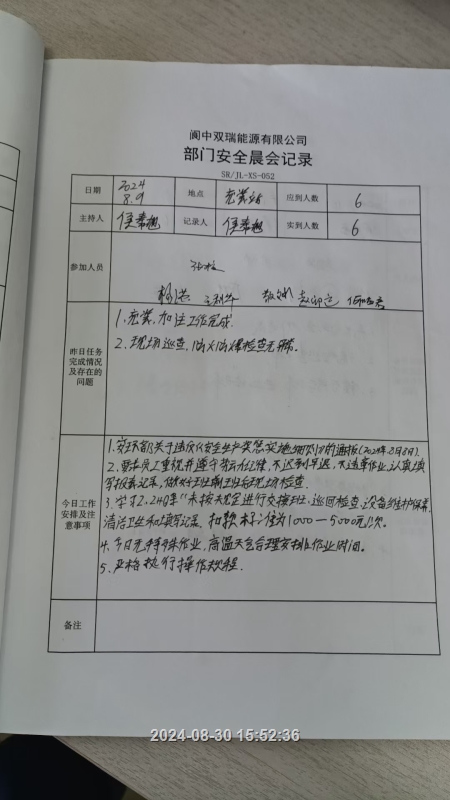 阆中双瑞能源有限公司
部门安全晨会记录
SR/JL-XS-052
日期 2024 8.9 地点 充装站 应到人数 6
主持人 侯 记录人 侯 实到人数 6
参加人员
昨日任务完成情况及存在的问题
1.充装、加注工作完成.
2.现场巡查,防火防爆检查无异常.
今日工作安排及注意事项
1.安环部关于违反《安全生产奖惩实施细则》的通报(2024年8月8日).
2.要求员工重视并遵守劳动纪律,不迟到早退,不违章作业,认真填
写报表记录,做好交接班前班后现场检查.
3.学习2.24条"未按规定进行交接班、巡回检查、设备维护保养、
清洁卫生和填写记录、扣款标准为1000—5000元/次.
4.今日无特殊作业,高温天气合理安排作业时间。
5.严格执行操作规程.
备注
2024-08-30 15:52:36